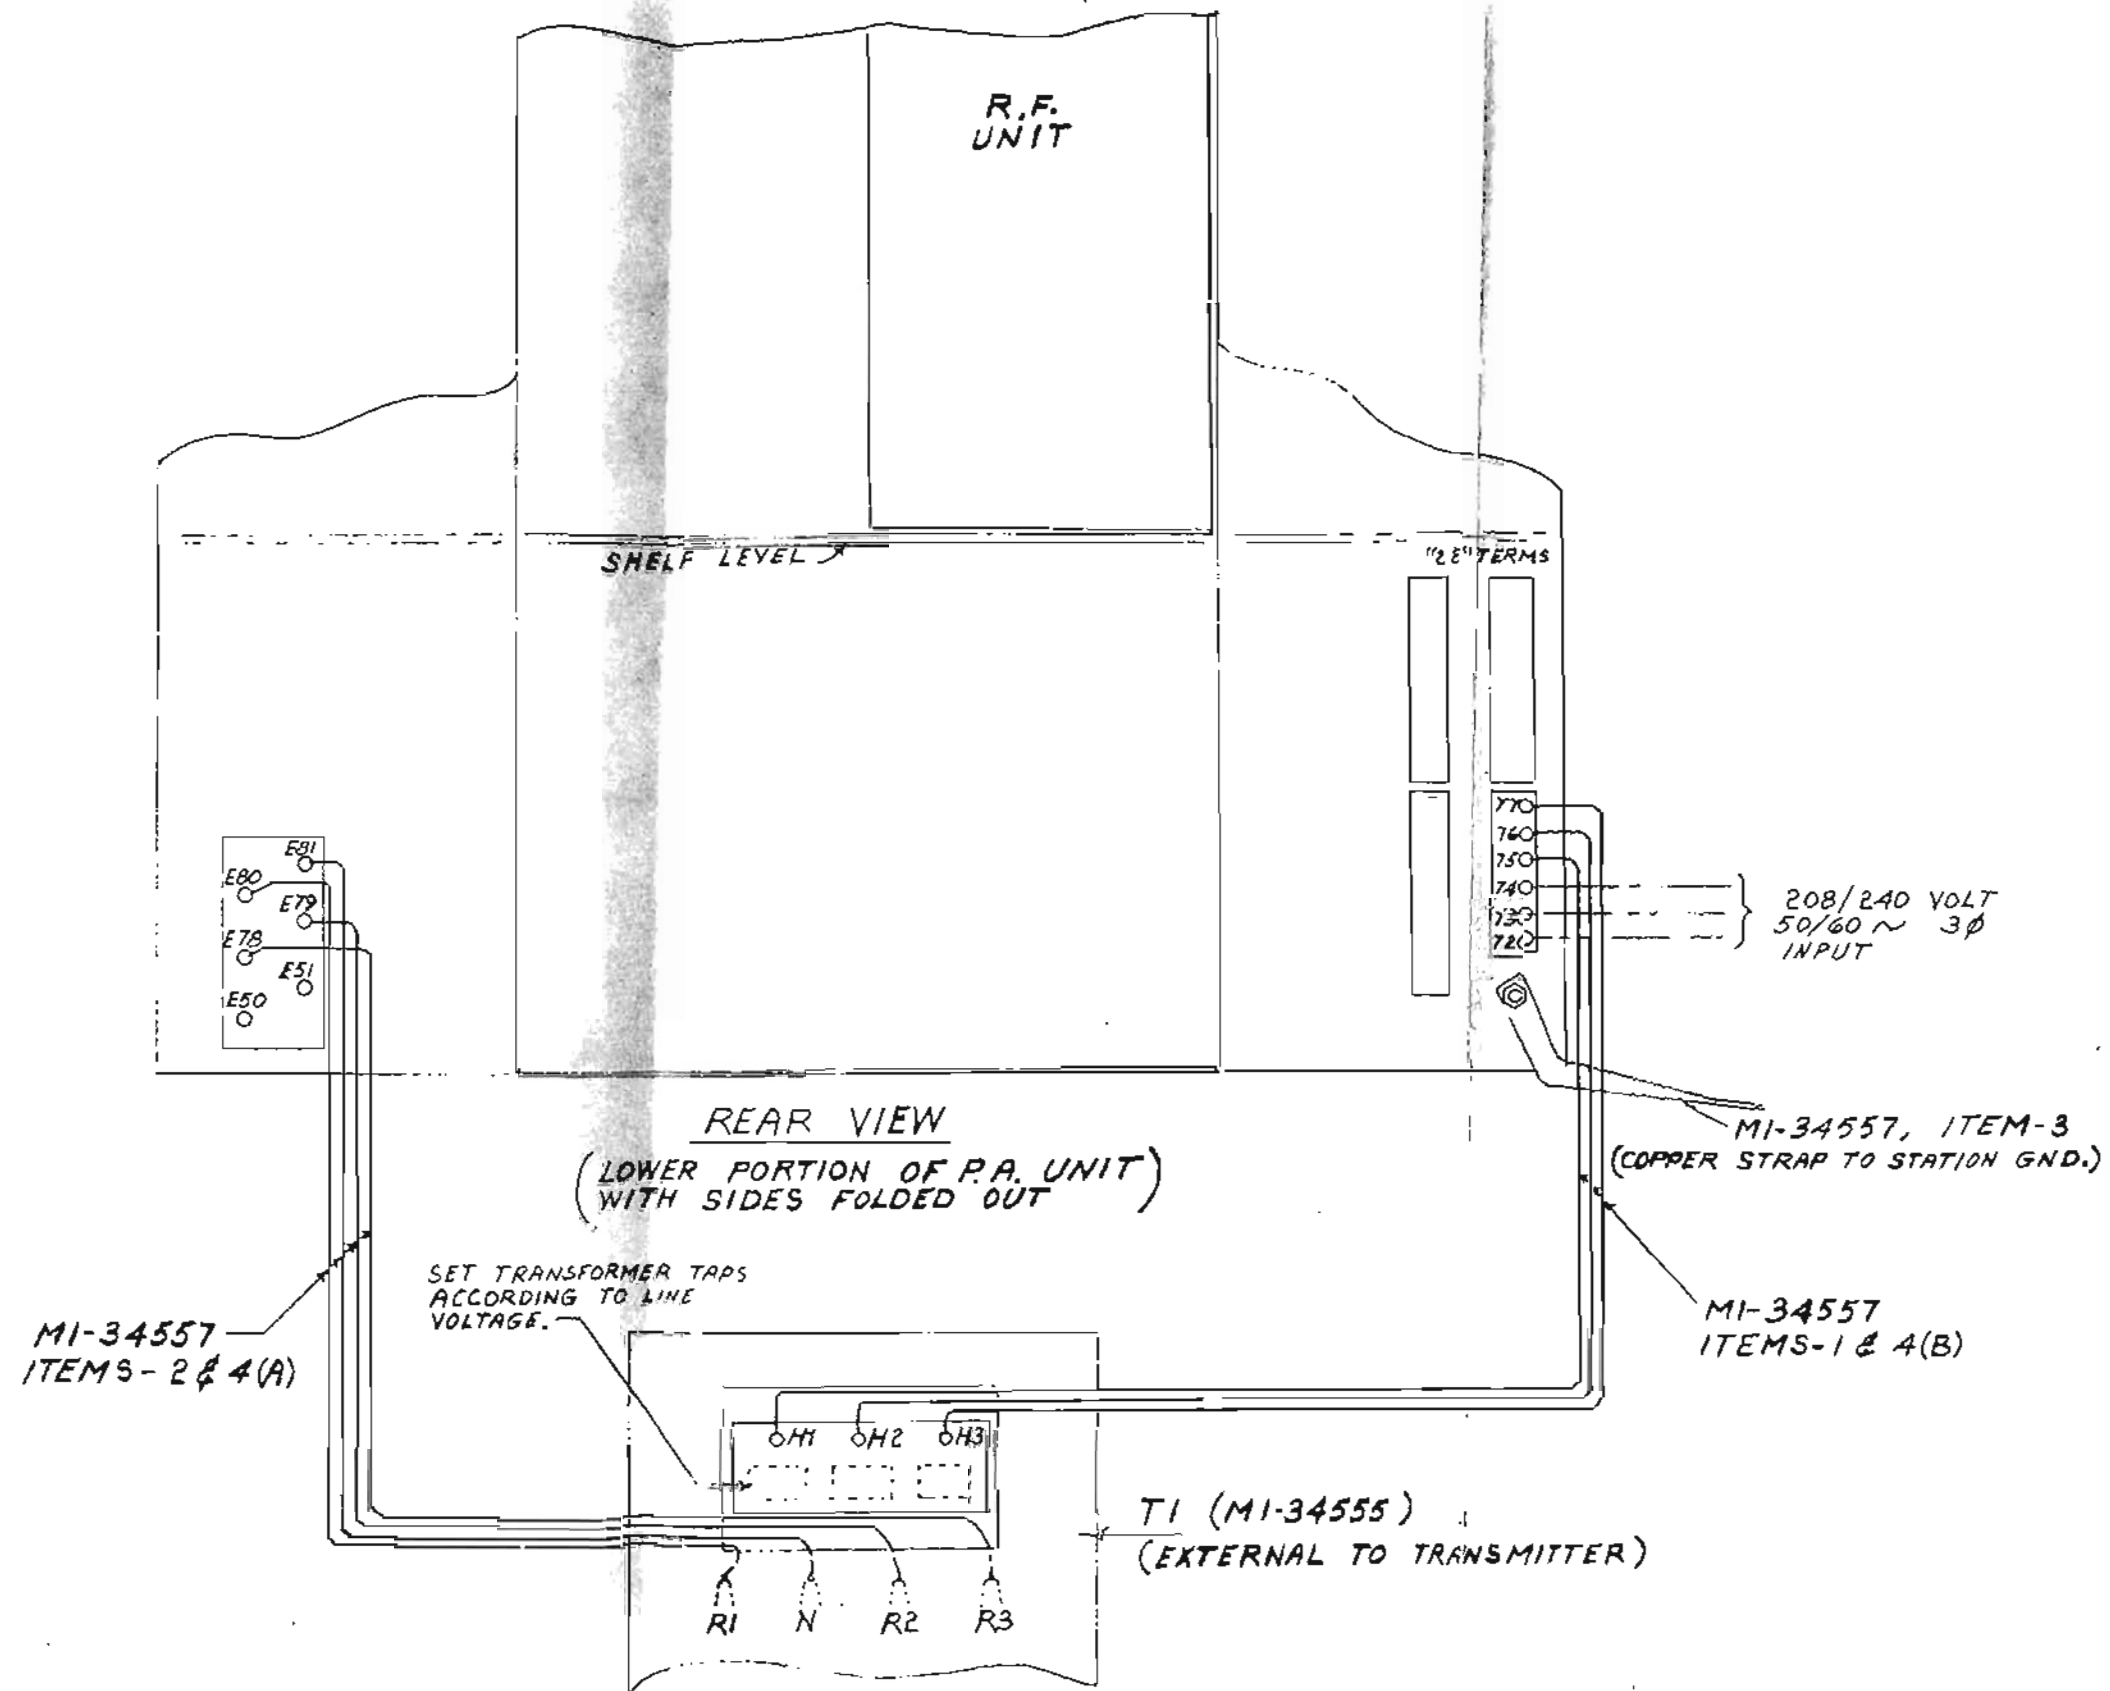 R.F.
UNIT
SHELF LEVEL
"2E" TERMS
77
76
75
74
73
72
208/240 VOLT
50/60 ~ 3φ
INPUT
E81
E80
E79
E78
E51
E50
REAR VIEW
(LOWER PORTION OF P.A. UNIT
WITH SIDES FOLDED OUT)
MI-34557, ITEM-3
(COPPER STRAP TO STATION GND.)
SET TRANSFORMER TAPS
ACCORDING TO LINE
VOLTAGE.
MI-34557
ITEMS-2 & 4(A)
MI-34557
ITEMS-1 & 4(B)
H1 H2 H3
T1 (MI-34555)
(EXTERNAL TO TRANSMITTER)
R1 N R2 R3